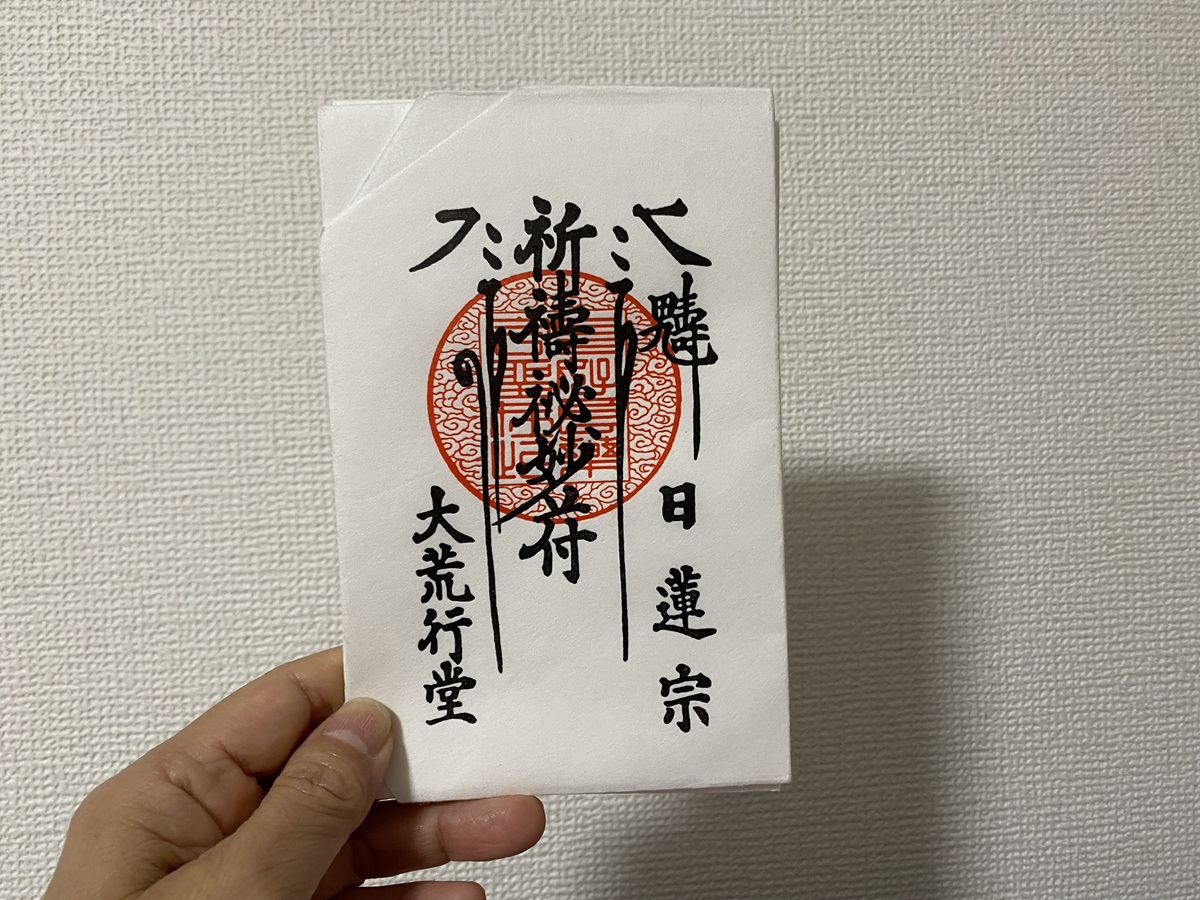 日蓮宗
祈禱祕妙符
大荒行堂